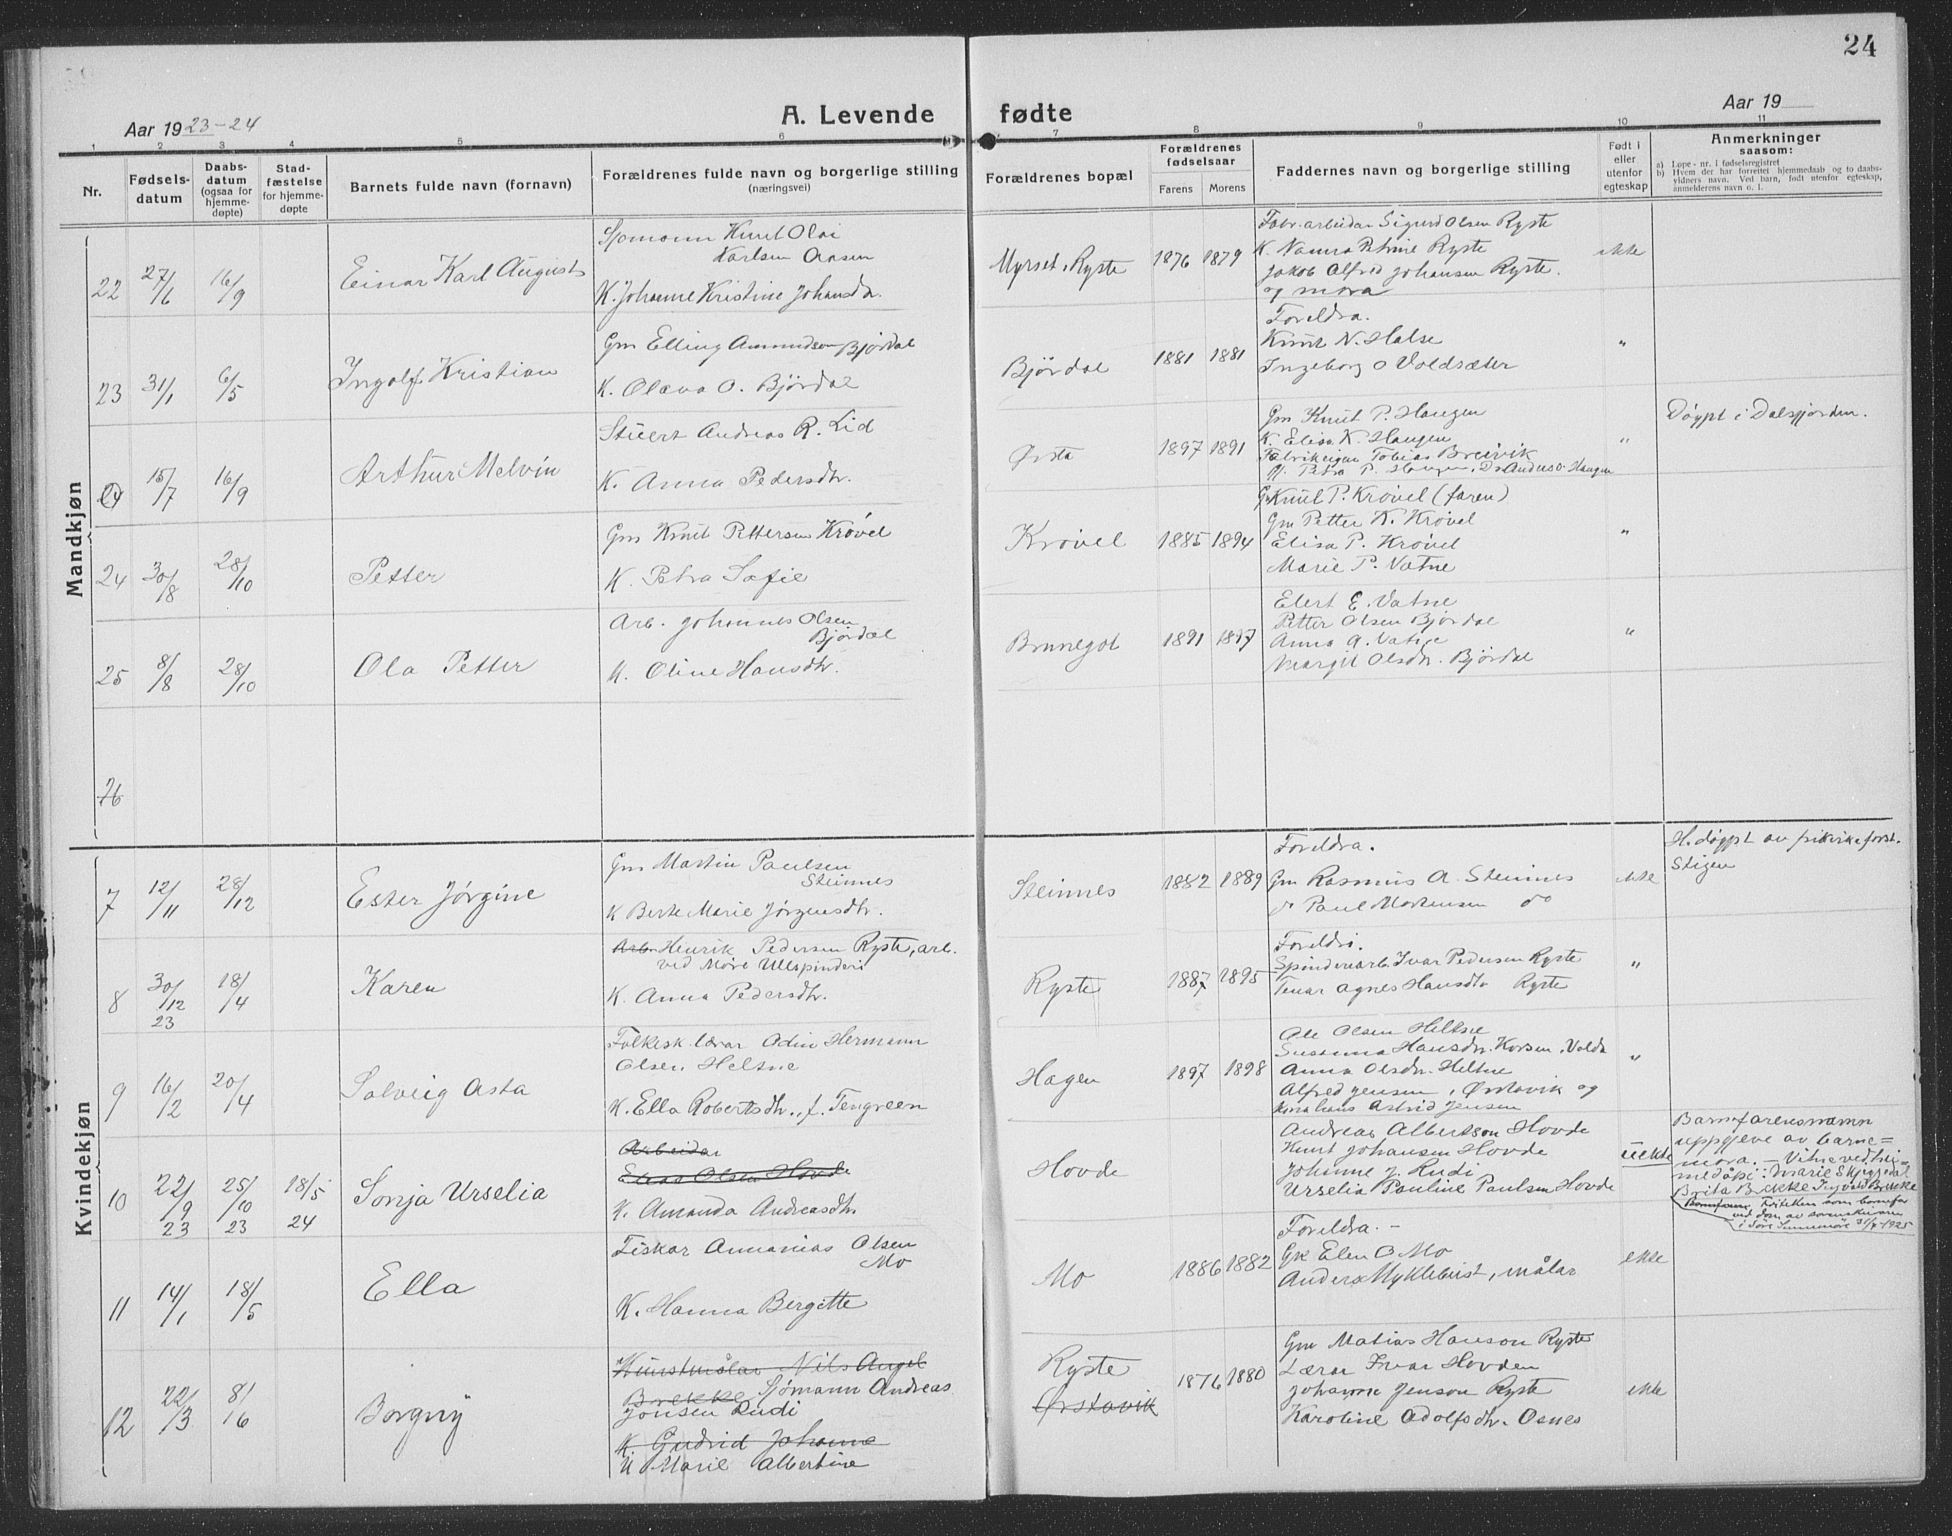 24
Aar 1923-24
A. Levende fødte
Aar 19
1 2 3 4 5 6 7 8 9 10 11
Nr.
Fødsels-
datum
Daabs-
datum
(ogsaa for
hjemme-
døpte)
Stad-
fæstelse
for hjemme-
døpte
Barnets fulde navn (fornavn)
Forældrenes fulde navn og borgerlige stilling
(næringsvei)
Forældrenes bopæl
Forældrenes
fødselsaar
Farens Morens
Faddernes navn og borgerlige stilling
Født i
eller
utenfor
egteskap
Anmerkninger
saasom:
a) Løpe-nr. i fødselsregistret
b) Hvem der har forrettet hjemmedaab og to daabs-
vidners navn. Ved barn, født utenfor egteskap,
anmelderens navn o. l.
Mandkjøn
22 27/6 16/9
Einar Karl August
Sjømann Knut Olai
Karlsen Aasen
K. Johanne Kristine Johansdr.
Myrset, Ryste
1876 1879
Fabr. arbeidar Sigurd Olsen Ryste
K. Nanna Petrine Ryste
Jakob Alfred Johansen Ryste.
og mora
ekte
23 31/1 6/5
Ingolf Kristian
Gm Elling Amundson Bjørdal
K. Olava O. Bjørdal
Bjørdal
1881 1881
Foreldra.
Knut N. Halse
Ingeborg O Voldsæter
"
24 15/7 16/9
Arthur Melvin
Stuert Andreas R. Lid
K. Anna Pedersdtr.
Ørsta
1897 1891
Gm Knut P. Haugen
K. Elisa K. Haugen
Fabrikeigar Tobias Breivik
Pj. Petra P. Haugen, Dr Anders Haugen
"
Døypt i Dalsfjorden.
24 30/8 28/10
Petter
Gm Knut Pettersen Krøvel
K. Petra Sofie
Krøvel
1885 1894
Gm Knut P. Krøvel (faren)
Gm Petter K. Krøvel
Elisa P. Krøvel
Marie P. Vatne
"
25 8/8 28/10
Ola Petter
Arb. Johannes Olsen
Bjørdal
K. Oline Hansdtr.
Brunegot
1891 1897
Elert E. Vatne
Petter Olsen Bjørdal
Anna A. Vatne
Margit Olsdtr. Bjørdal
"
26
Kvindekjøn
7 12/11 28/12
Ester Jørgine
Gm Martin Paulsen
Steinnes
K Berte Marie Jørgensdtr.
Steinnes
1882 1889
Foreldra.
Gm Rasmus A. Steinnes
do Paul Mortensen do
ekte
H. døypt av frikirkeforst.
Stigen
8 30/12 23 18/4
Karen
Arb. Henrik Pedersen Ryste, arb.
ved Møre Ullspinderi
K. Anna Pedersdtr.
Ryste
1887 1895
Foreldri.
Spinderiarb. Ivar Pedersen Ryste
Tenar Agnes Hansdtr Ryste
"
9 16/2 20/4
Solveig Asta
Folkesk. lærar Odin Hermann
Olsen Heltne
K. Ella Robertsdtr., f. Tengreen
Hagen
1897 1898
Ole Olsen Heltne
Susanna Hansdtr. Korsen, Volda
Anna Olsdtr. Heltne
Alfred Jensen, Ørstavik og
kona hans Astrid Jensen
"
10 22/9 23 25/10 23 18/5 24
Sonja Urselia
Arbeidar
Elias Olsen Hovde
K. Amanda Andreasdtr
Hovde
Andreas Albertson Hovde
Knut Johansen Hovde
Johanne J. Rudi
Urselia Pauline Paulsen Hovde
uekte
Barnefarensnamn
uppgjeve av barne=
mora. — Vitne ved hei=
medåp: Marie Skjegedal
Brita Brekke Ingvald Brekke
Barnefaren, frikjen som barnefar
ved dom av sorenskrivaren
i Søre Sunnmøre 31/7 1925
11 14/1 18/5
Ella
Fiskar Annanias Olsen
Mo
K. Hanna Bergitte
Mo
1886 1882
Foreldra. —
Gk Elen O Mo
Anders Myklebust, målar
ekte
12 22/3 8/6
Borgny
Kunstmålar Nils Angel
Brekke Sjømann Andreas
Jonsen Rudi
K. Gudrid Johanne
K Marie Albertine
Ryste
Ørstavik
1876 1880
Gm Matias Hanson Ryste
Lærar Ivar Hovden
Johanne Jenson Ryste
Karoline Adolfsdtr. Osnes
ekte